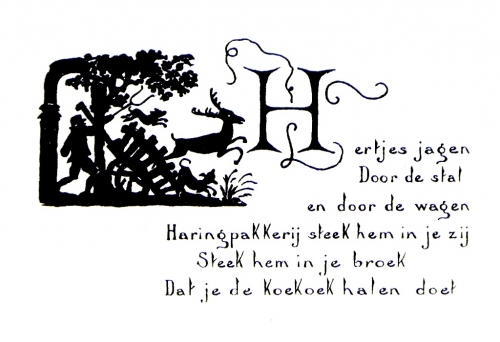 Hertjes jagen
Door de stal
en door de wagen
Haringpakkerij steek hem in je zij
Steek hem in je broek
Dat je de koekoek halen doet